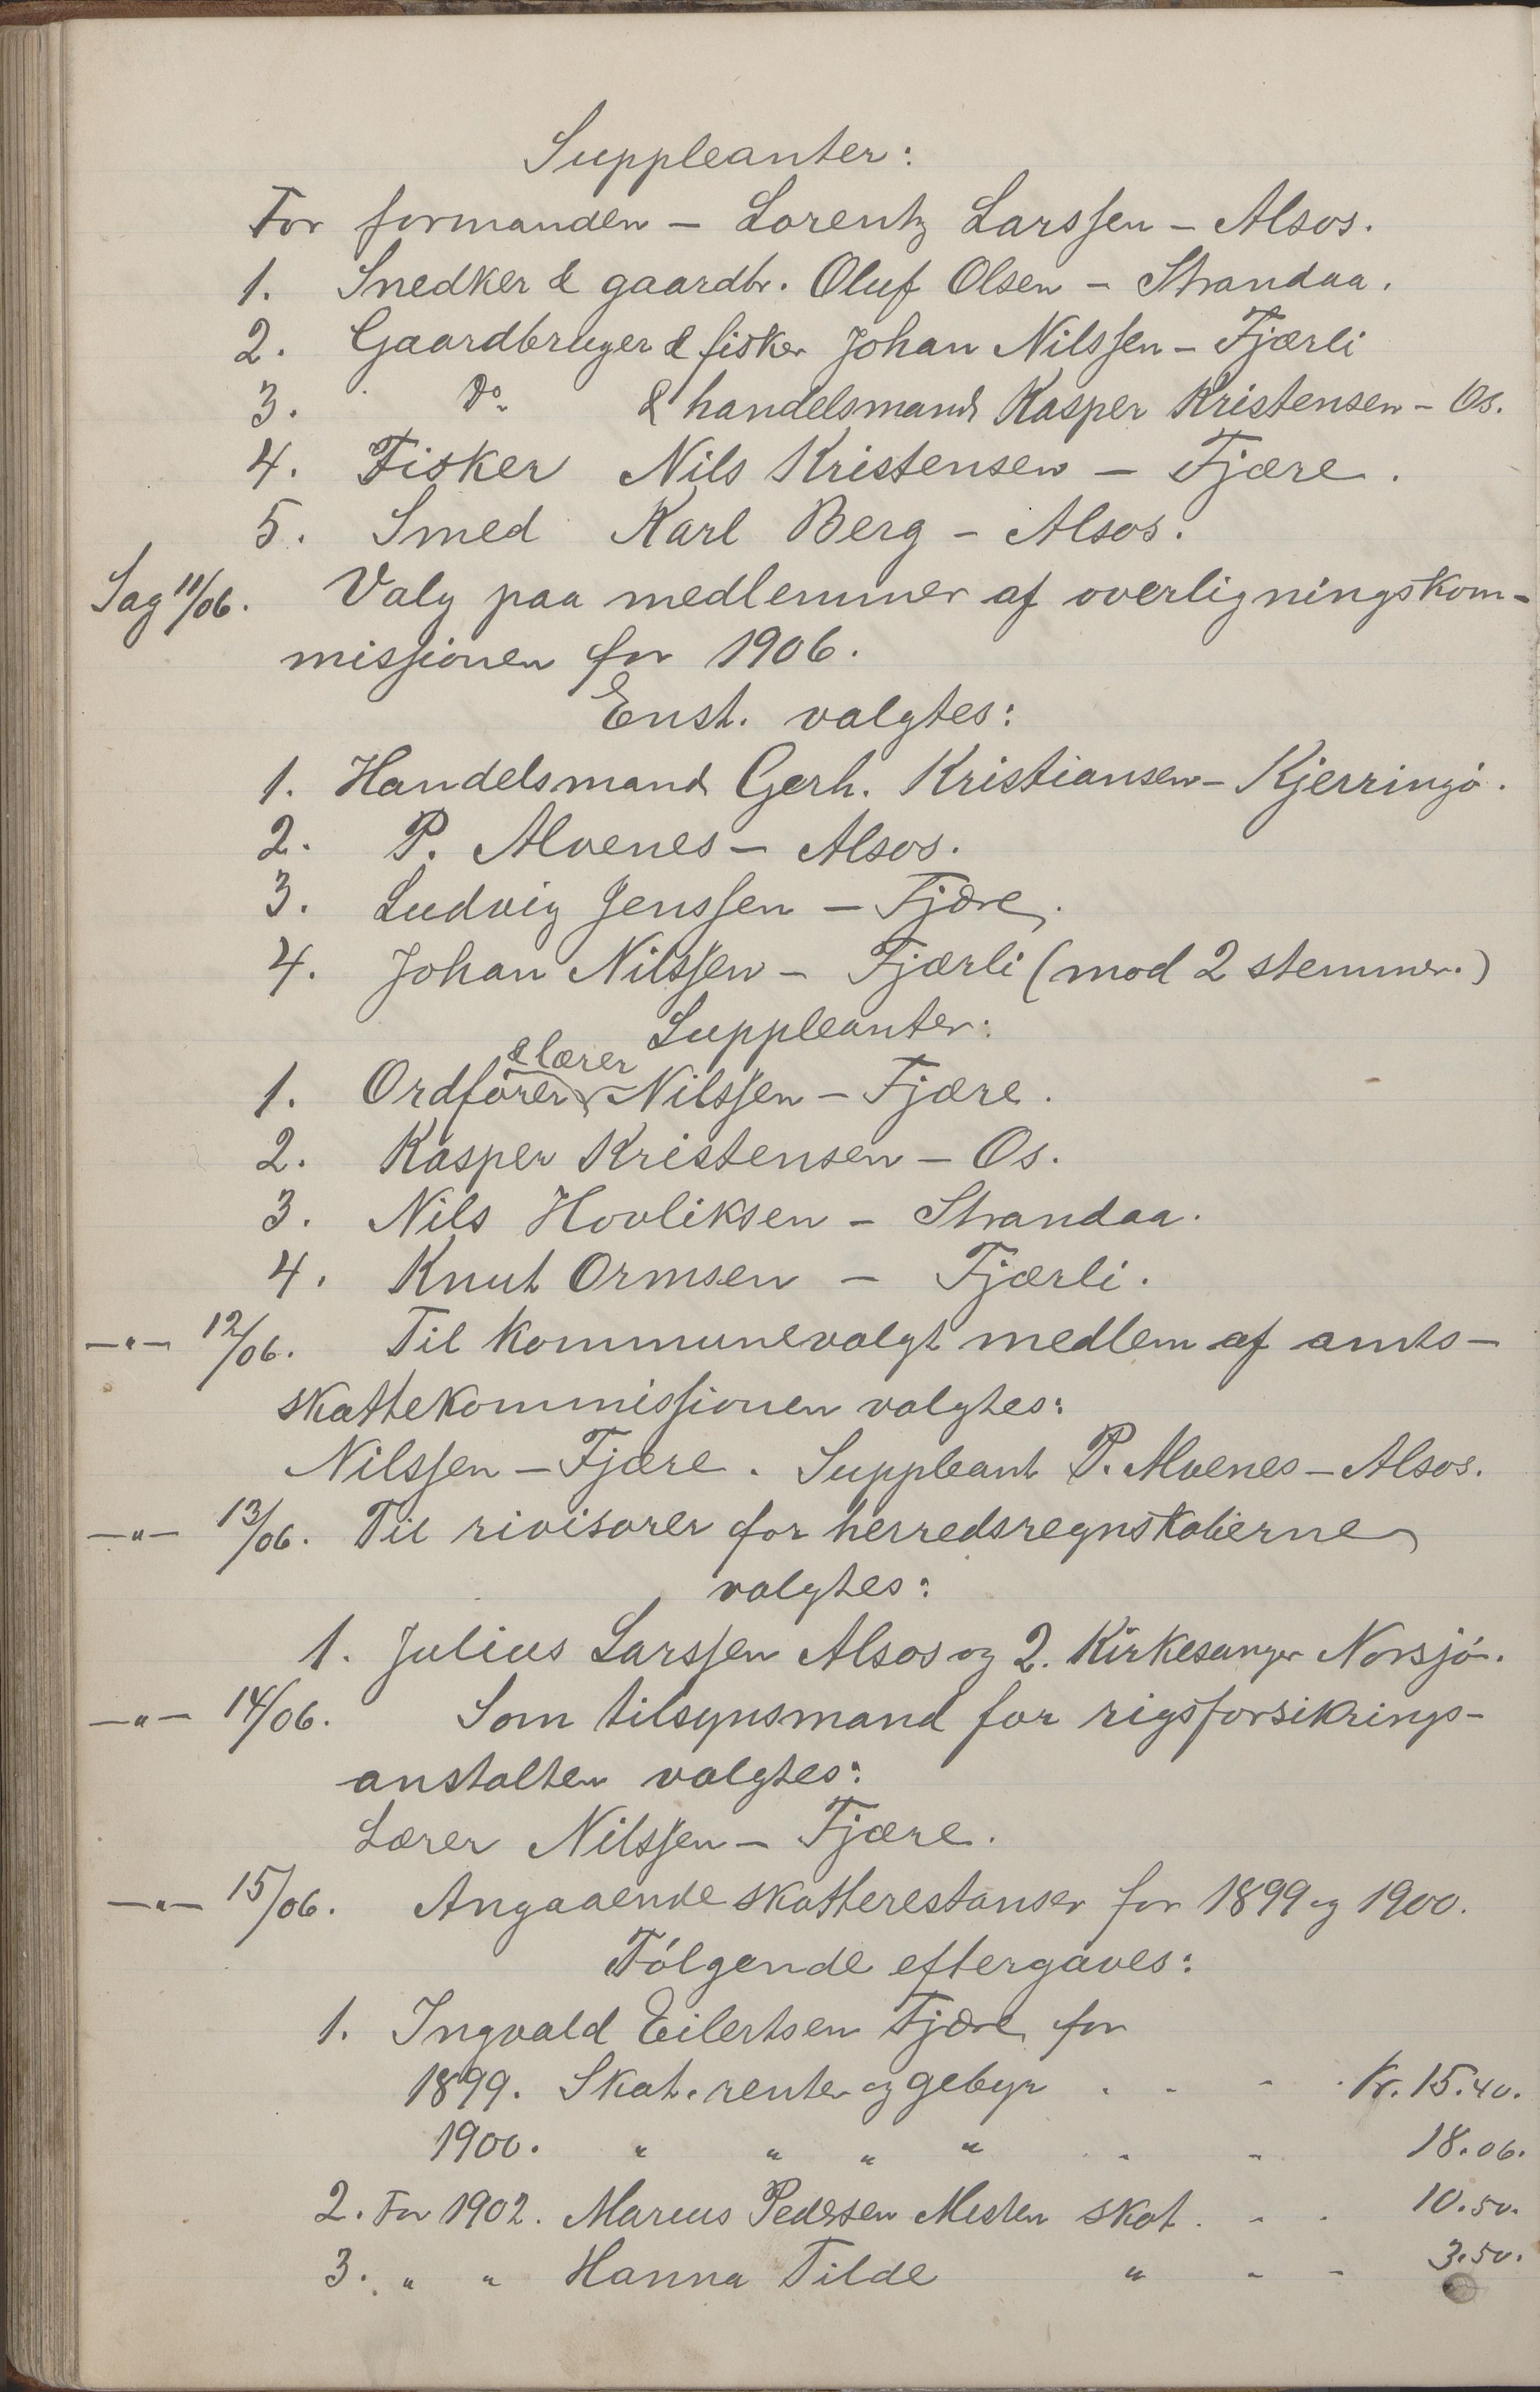 Suppleanter:
For formanden – Lorentz Larssen – Alsos.
1. Snedker & gaardbr. Oluf Olsen – Strandaa.
2. Gaardbruger & fisker Johan Nilssen – Fjærli
3. Do. & handelsmand Kasper Kristensen – Os.
4. Fisker Nils Kristensen – Fjære.
5. Smed Karl Berg – Alsos.
Sag 11/06. Valg paa medlemmer af overligningskom-
missionen for 1906.
Enst. valgtes:
1. Handelsmand Gerh. Kristiansen – Kjerringö.
2. P. Alvenes – Alsos.
3. Ludvig Jenssen – Fjære.
4. Johan Nilssen – Fjærli (mod 2 stemmer.)
Suppleanter:
1. Ordförer & lærer Nilssen – Fjære.
2. Kasper Kristensen – Os.
3. Nils Hovliksen – Strandaa.
4. Knut Ormsen – Fjærli.
–"– 12/06. Til kommunevalgt medlem af amts-
skattekommissionen valgtes:
Nilssen – Fjære. Suppleant P. Alvenes – Alsos.
–"– 13/06. Til rivisorer for herredsregnskaberne
valgtes:
1. Julius Larssen Alsos og 2. Kirkesanger Norsjö.
–"– 14/06. Som tilsynsmand for rigsforsikrings-
anstalten valgtes:
Lærer Nilssen – Fjære.
–"– 15/06. Angaaende skatterestanser for 1899 og 1900.
Fölgende eftergaves:
1. Ingvald Eilertsen Fjære for
1899. Skat. renter og gebyr . . - . Kr. 15.40.
1900. " " " " . - 18.06.
2. For 1902. Marius Pedersen Misten skat . - . 10.50.
3. " " Hanna Tilde " - - 3.50.